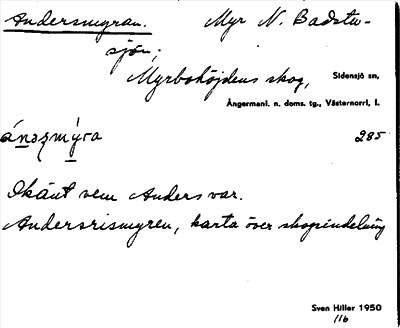 Andersmyran. Myr N. Badstu-
sjön;
Myrbohöjdens skog, Sidensjö sn,
Ångermanl. n. doms. tg., Västernorrl. l.
ánəʒmýra 285
Okänt vem Anders var.
Andersrismyren, karta över skogsindelning
Sven Hiller 1950
116